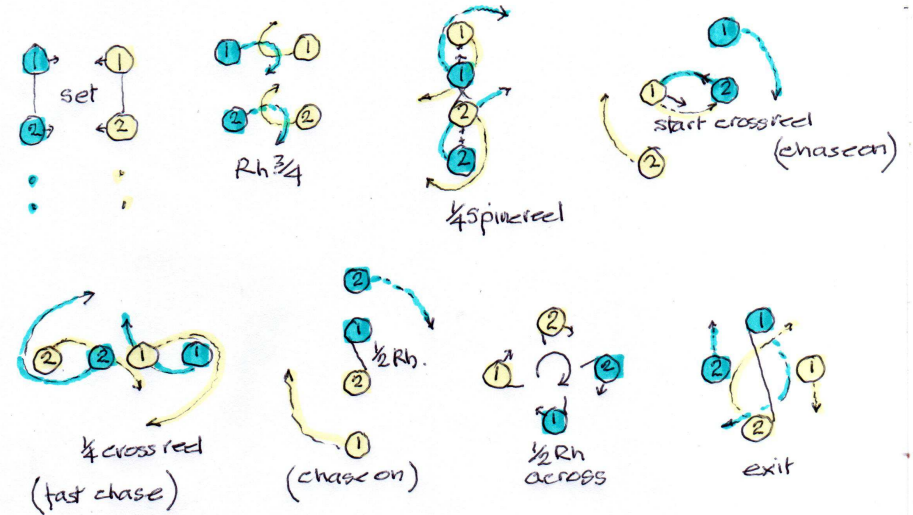 1 1
set
2 2
1 1
2 2
Rh 3/4
1
1
2
2
1/4 spinereel
1
1 2
start crossreel
(chase on)
2
2 2 1 1
1/4 crossreel
(fast chase)
2
1
1/2 Rh.
2
1
(chase on)
2
1 2
1
1/2 Rh
across
1
2 1
2
exit